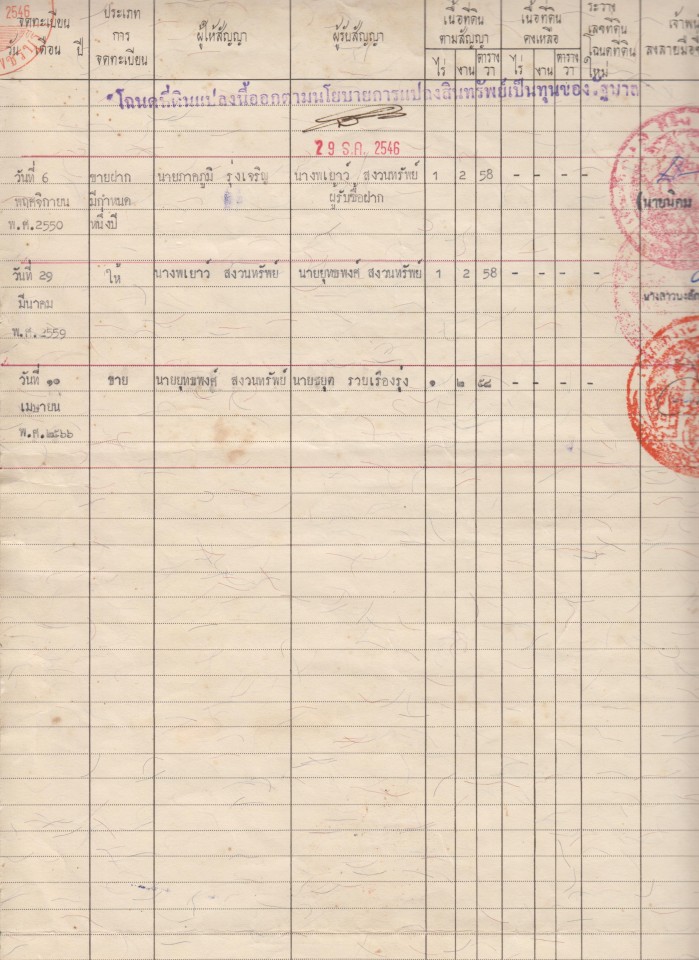 2546
จดทะเบียน
วัน เดือน ปี
ประเภท
การ
จดทะเบียน
ผู้ให้สัญญา
ผู้รับสัญญา
เนื้อที่ดิน
ตามสัญญา
ไร่ งาน ตาราง
วา
เนื้อที่ดิน
คงเหลือ
ไร่ งาน ตาราง
วา
ระวาง
เลขที่ดิน
โฉนดที่ดิน
ใหม่
เจ้าพน
ลงลายมือชื
โฉนดที่ดินแปลงนี้ออกตามนโยบายการแปลงสินทรัพย์เป็นทุนของรัฐบาล
29 ธ.ค. 2546
วันที่ 6 ขายฝาก นายภาคภูมิ รุ่งเจริญ นางพเยาว์ สงวนทรัพย์ 1 2 58 - - - -
พฤศจิกายน มีกำหนด ผู้รับซื้อฝาก (นายนิคม
พ.ศ.2550 หนึ่งปี
วันที่ 29 ให้ นางพเยาว์ สงวนทรัพย์ นายยุทธพงศ์ สงวนทรัพย์ 1 2 58 - - - -
มีนาคม
พ.ศ.2559
วันที่ ๑๐ ขาย นายยุทธพงศ์ สงวนทรัพย์ นายชยุต รวยเรืองรุ่ง ๑ ๒ ๕๘ - - - -
เมษายน
พ.ศ.๒๕๖๖